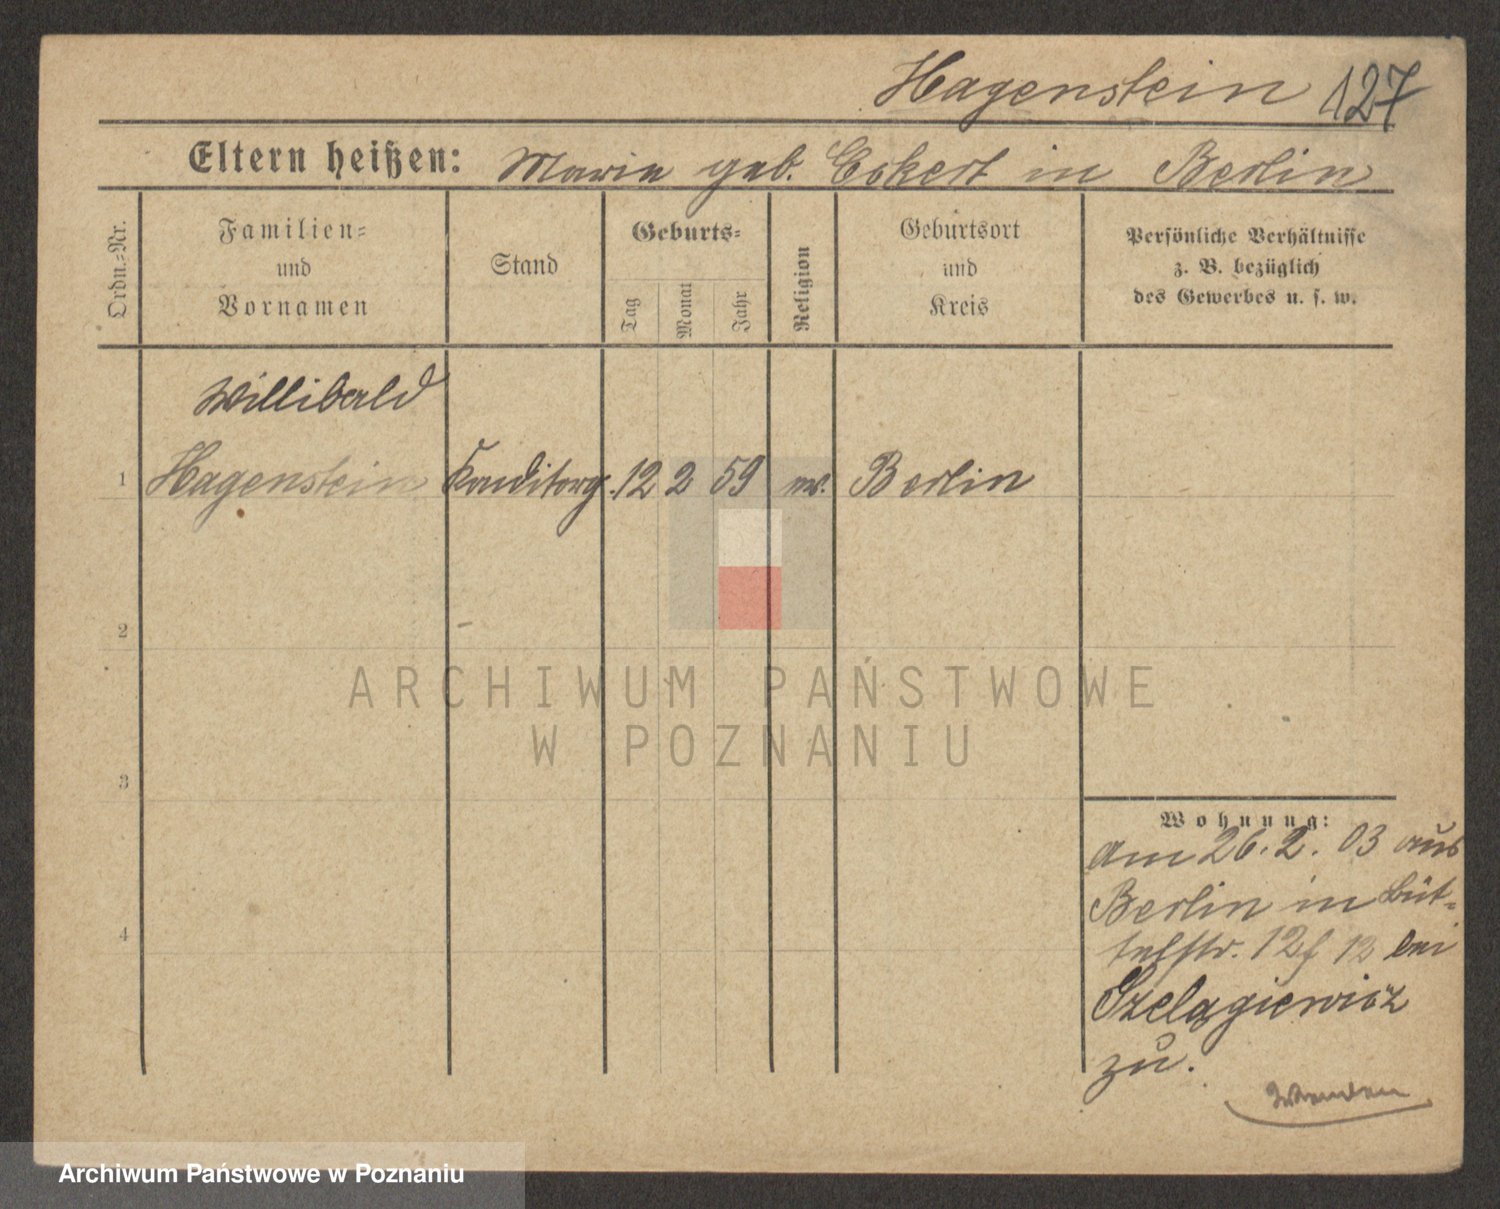 Hagenstein 127
Eltern heißen: Maria geb. Eckert in Berlin
Ordn.-Nr.
Familien-
und
Vornamen
Stand
Geburts-
Tag
Monat
Jahr
Religion
Geburtsort
und
Kreis
Persönliche Verhältnisse
z. B. bezüglich
des Gewerbes u. s. w.
Willibald
1 Hagenstein Konditorg. 12 2 59 ev. Berlin
2
ARCHIWUM PAŃSTWOWE
W POZNANIU
3
Wohnung:
am 26.2.03 aus
Berlin in Büt-
telstr. 12 bei
Szelągiewicz
zu.
4
Wenden
Archiwum Państwowe w Poznaniu